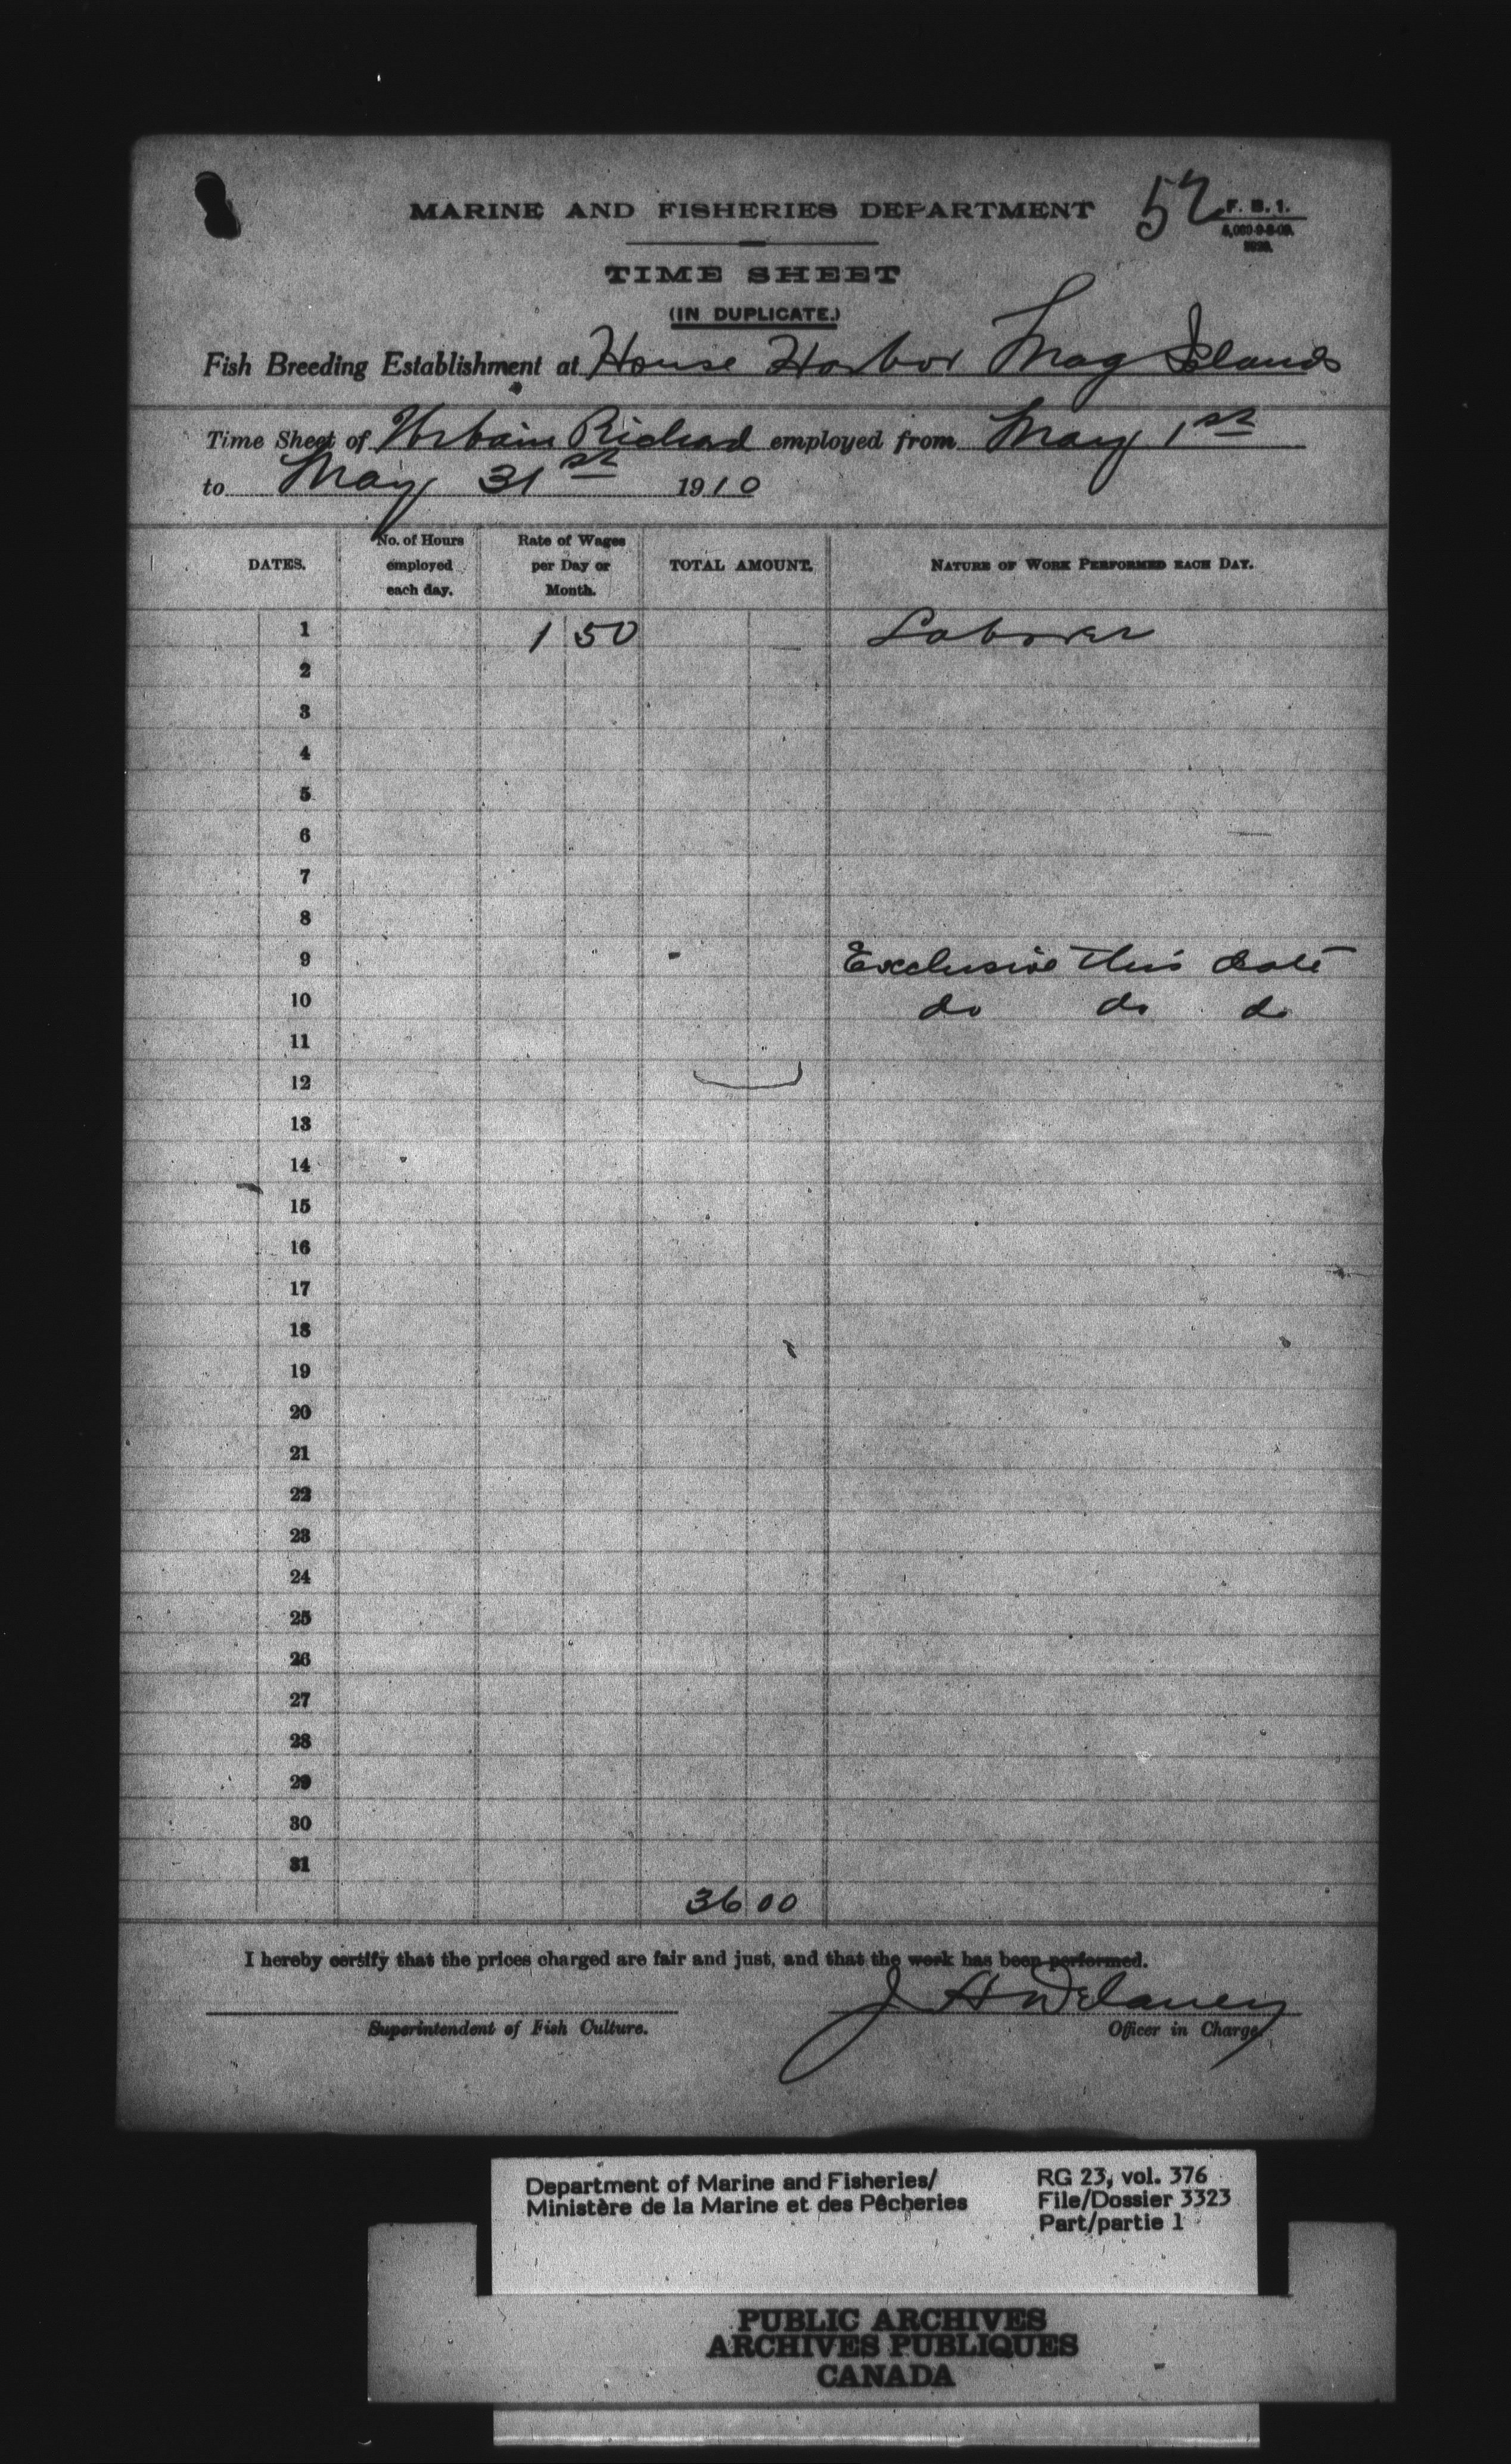 MARINE AND FISHERIES DEPARTMENT
52
F. B. 1.
5,000-9-8-09.
TIME SHEET
(IN DUPLICATE.)
Fish Breeding Establishment at House Harbor Mag Islands
Time Sheet of Urbain Richard employed from May 1st
to May 31st 1910
DATES. No. of Hours employed each day. Rate of Wages per Day or Month. TOTAL AMOUNT. NATURE OF WORK PERFORMED EACH DAY.
1 1 50 Laborer
2
3
4
5
6
7
8
9 Exclusive this date
10 do do do
11
12
13
14
15
16
17
18
19
20
21
22
23
24
25
26
27
28
29
30
31
36 00
I hereby certify that the prices charged are fair and just, and that the work has been performed.
J A Delaney
Superintendent of Fish Culture.
Officer in Charge.
Department of Marine and Fisheries/
Ministère de la Marine et des Pêcheries
RG 23, vol. 376
File/Dossier 3323
Part/partie 1
PUBLIC ARCHIVES
ARCHIVES PUBLIQUES
CANADA